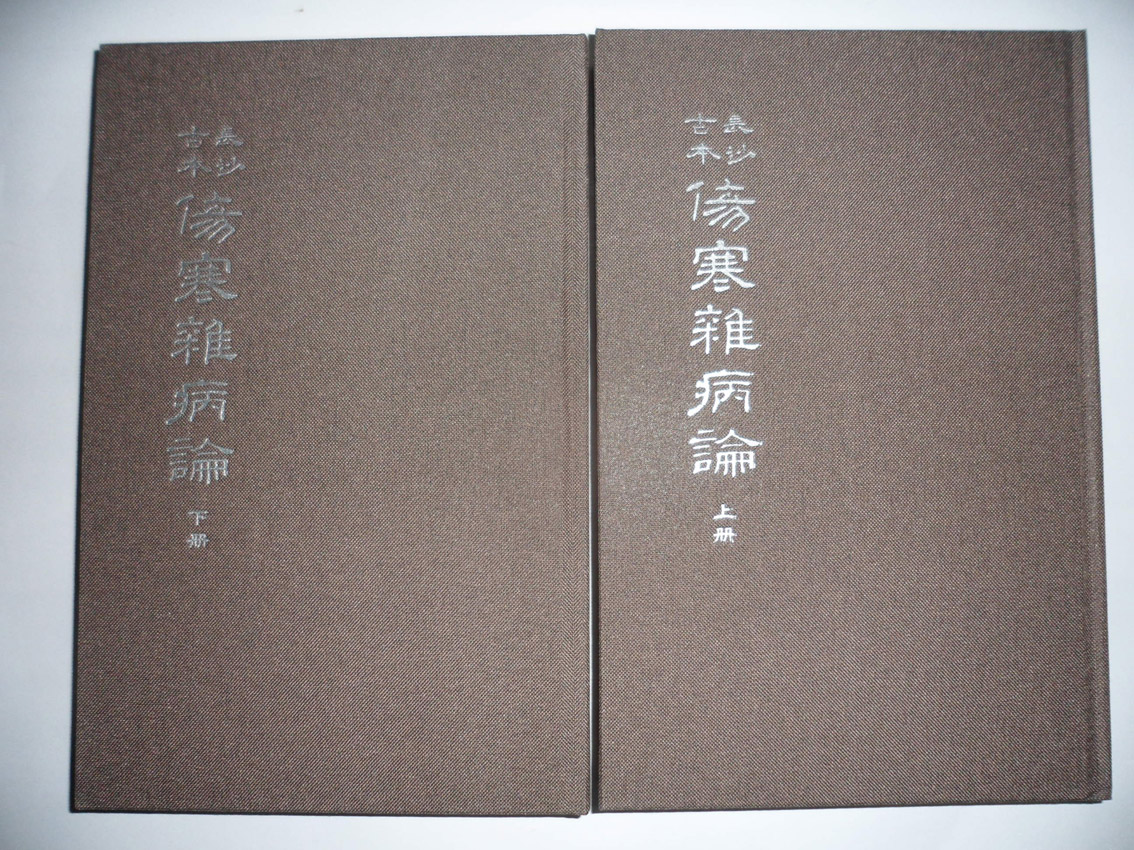 長沙
古本
傷寒雜病論
上册
長沙
古本
傷寒雜病論
下册